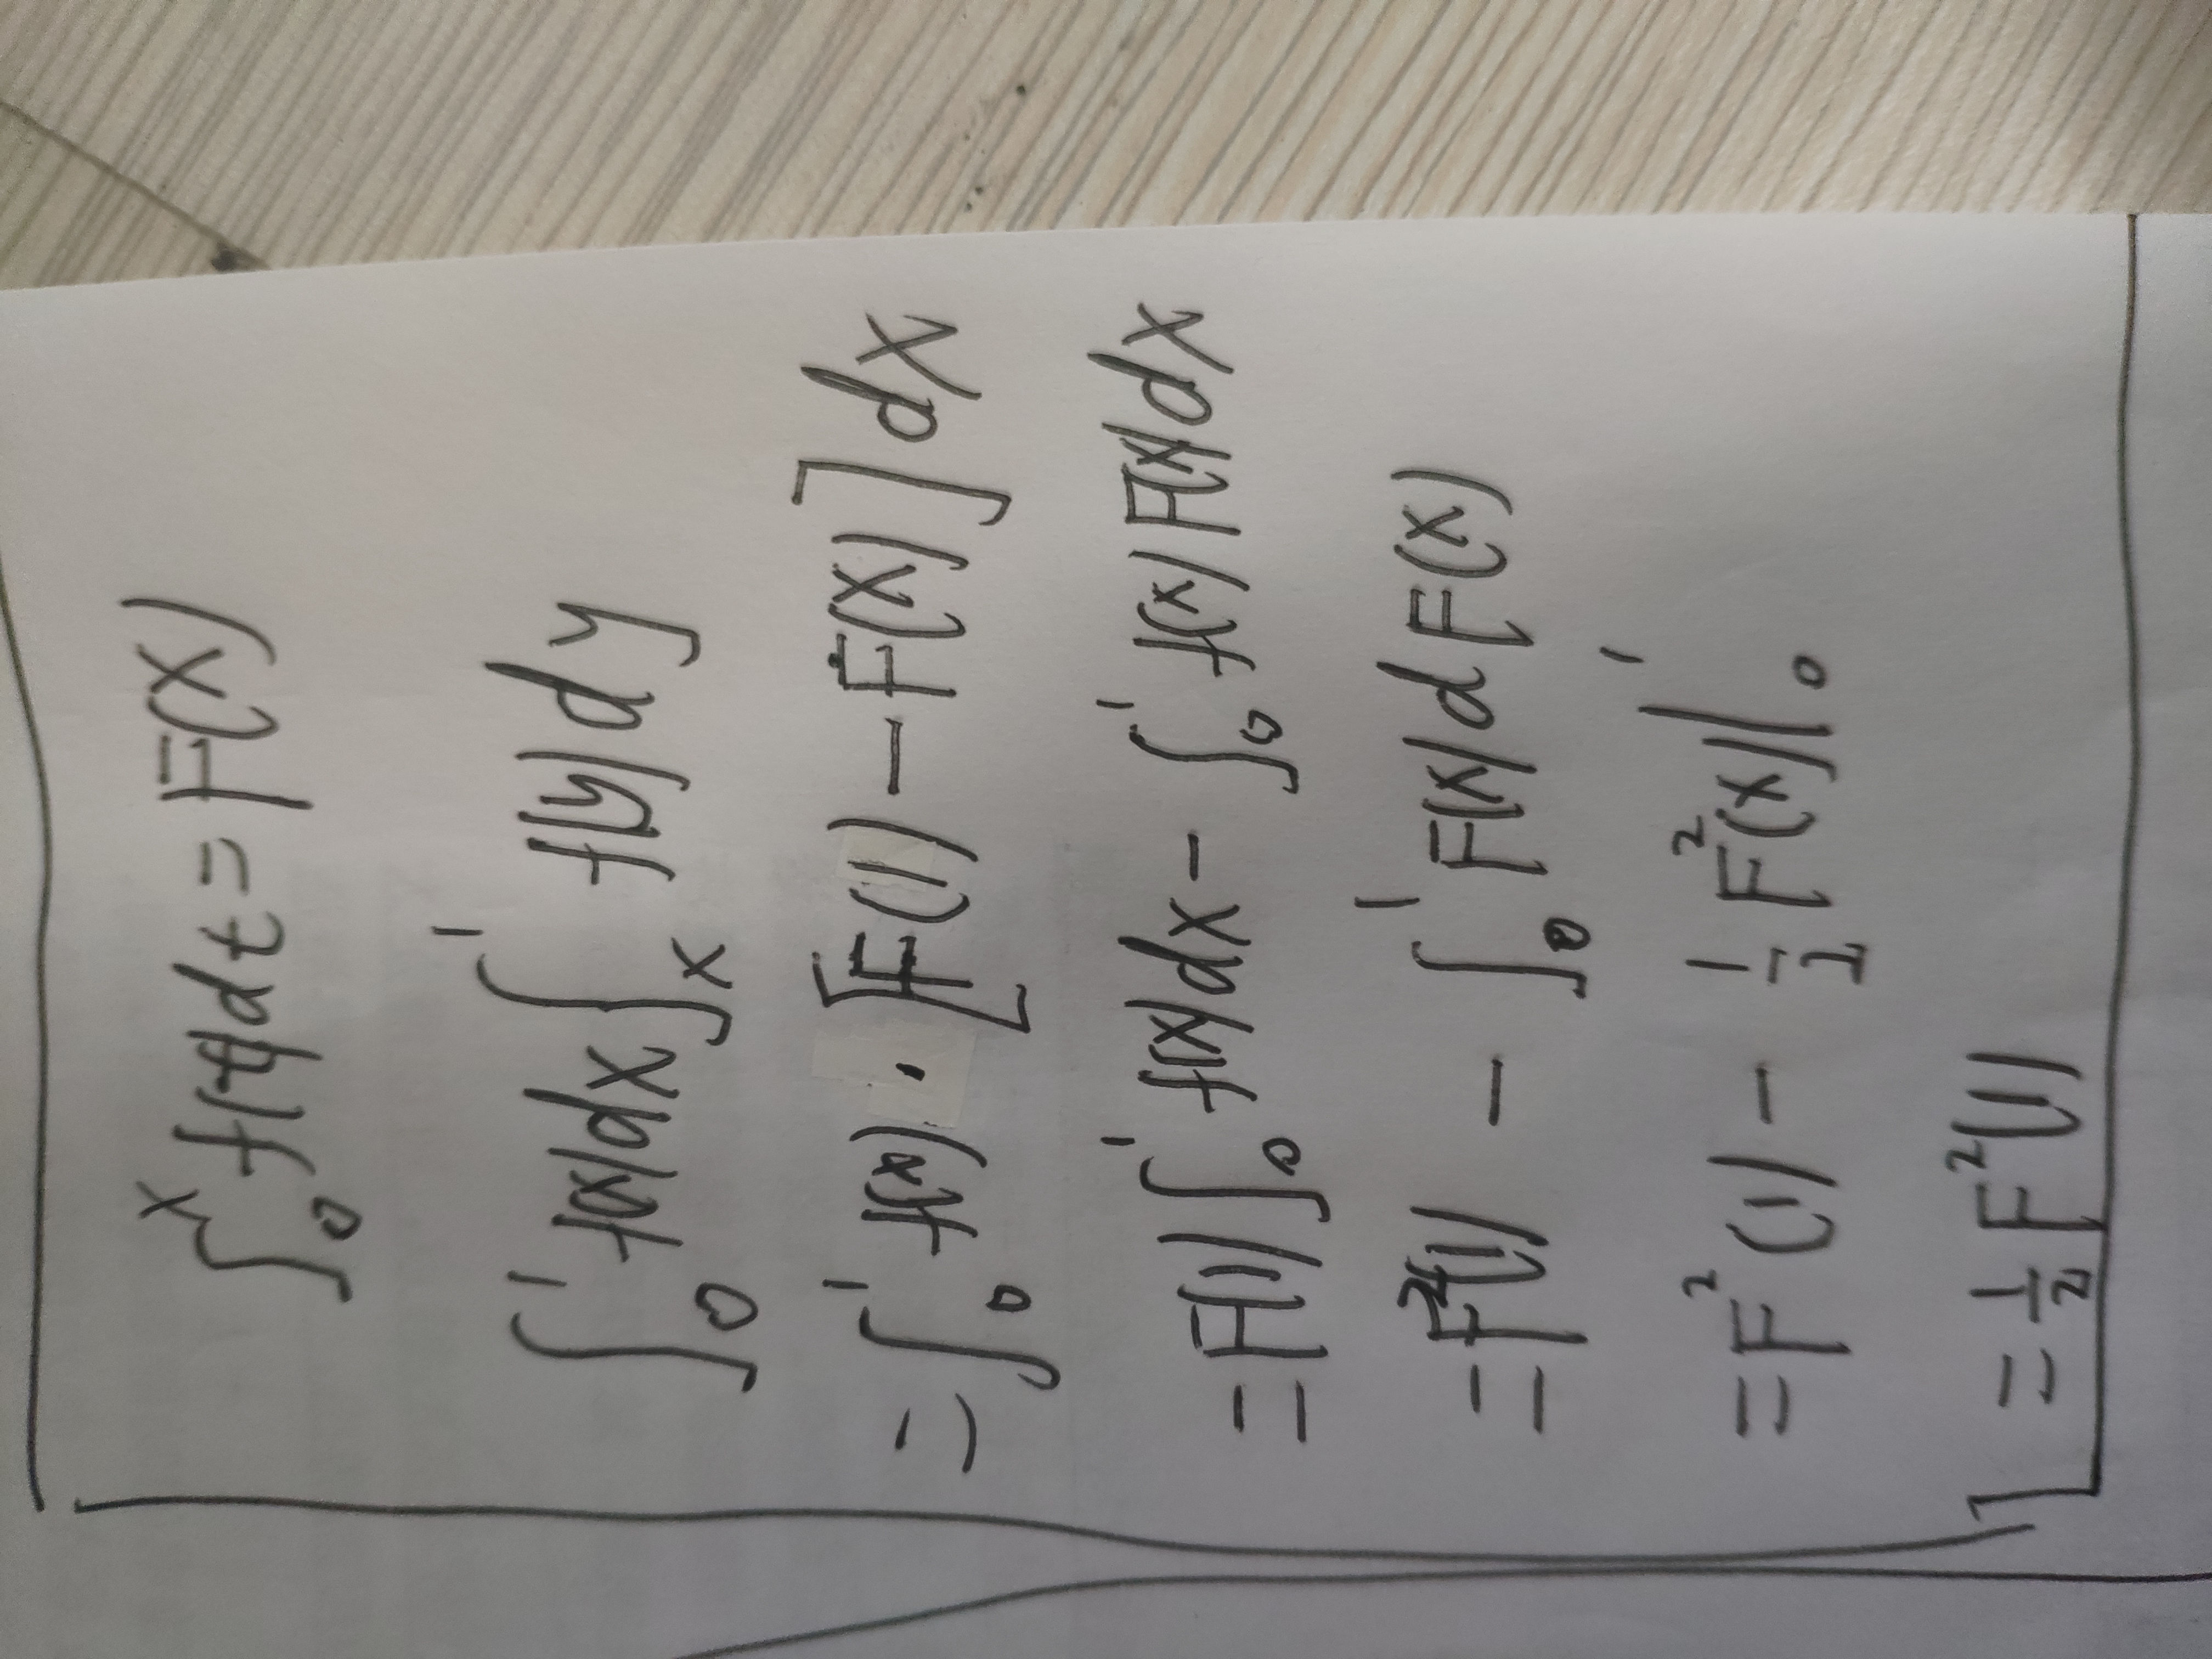 ∫₀ˣ f(t)dt = F(x)
∫₀¹ f(x)dx ∫ₓ¹ f(y)dy
= ∫₀¹ f(x) · [F(1) − F(x)] dx
= F(1) ∫₀¹ f(x)dx − ∫₀¹ f(x) F(x)dx
= F²(1) − ∫₀¹ F(x) d F(x)
= F²(1) − ½ F²(x) |₀¹
= ½ F²(1)